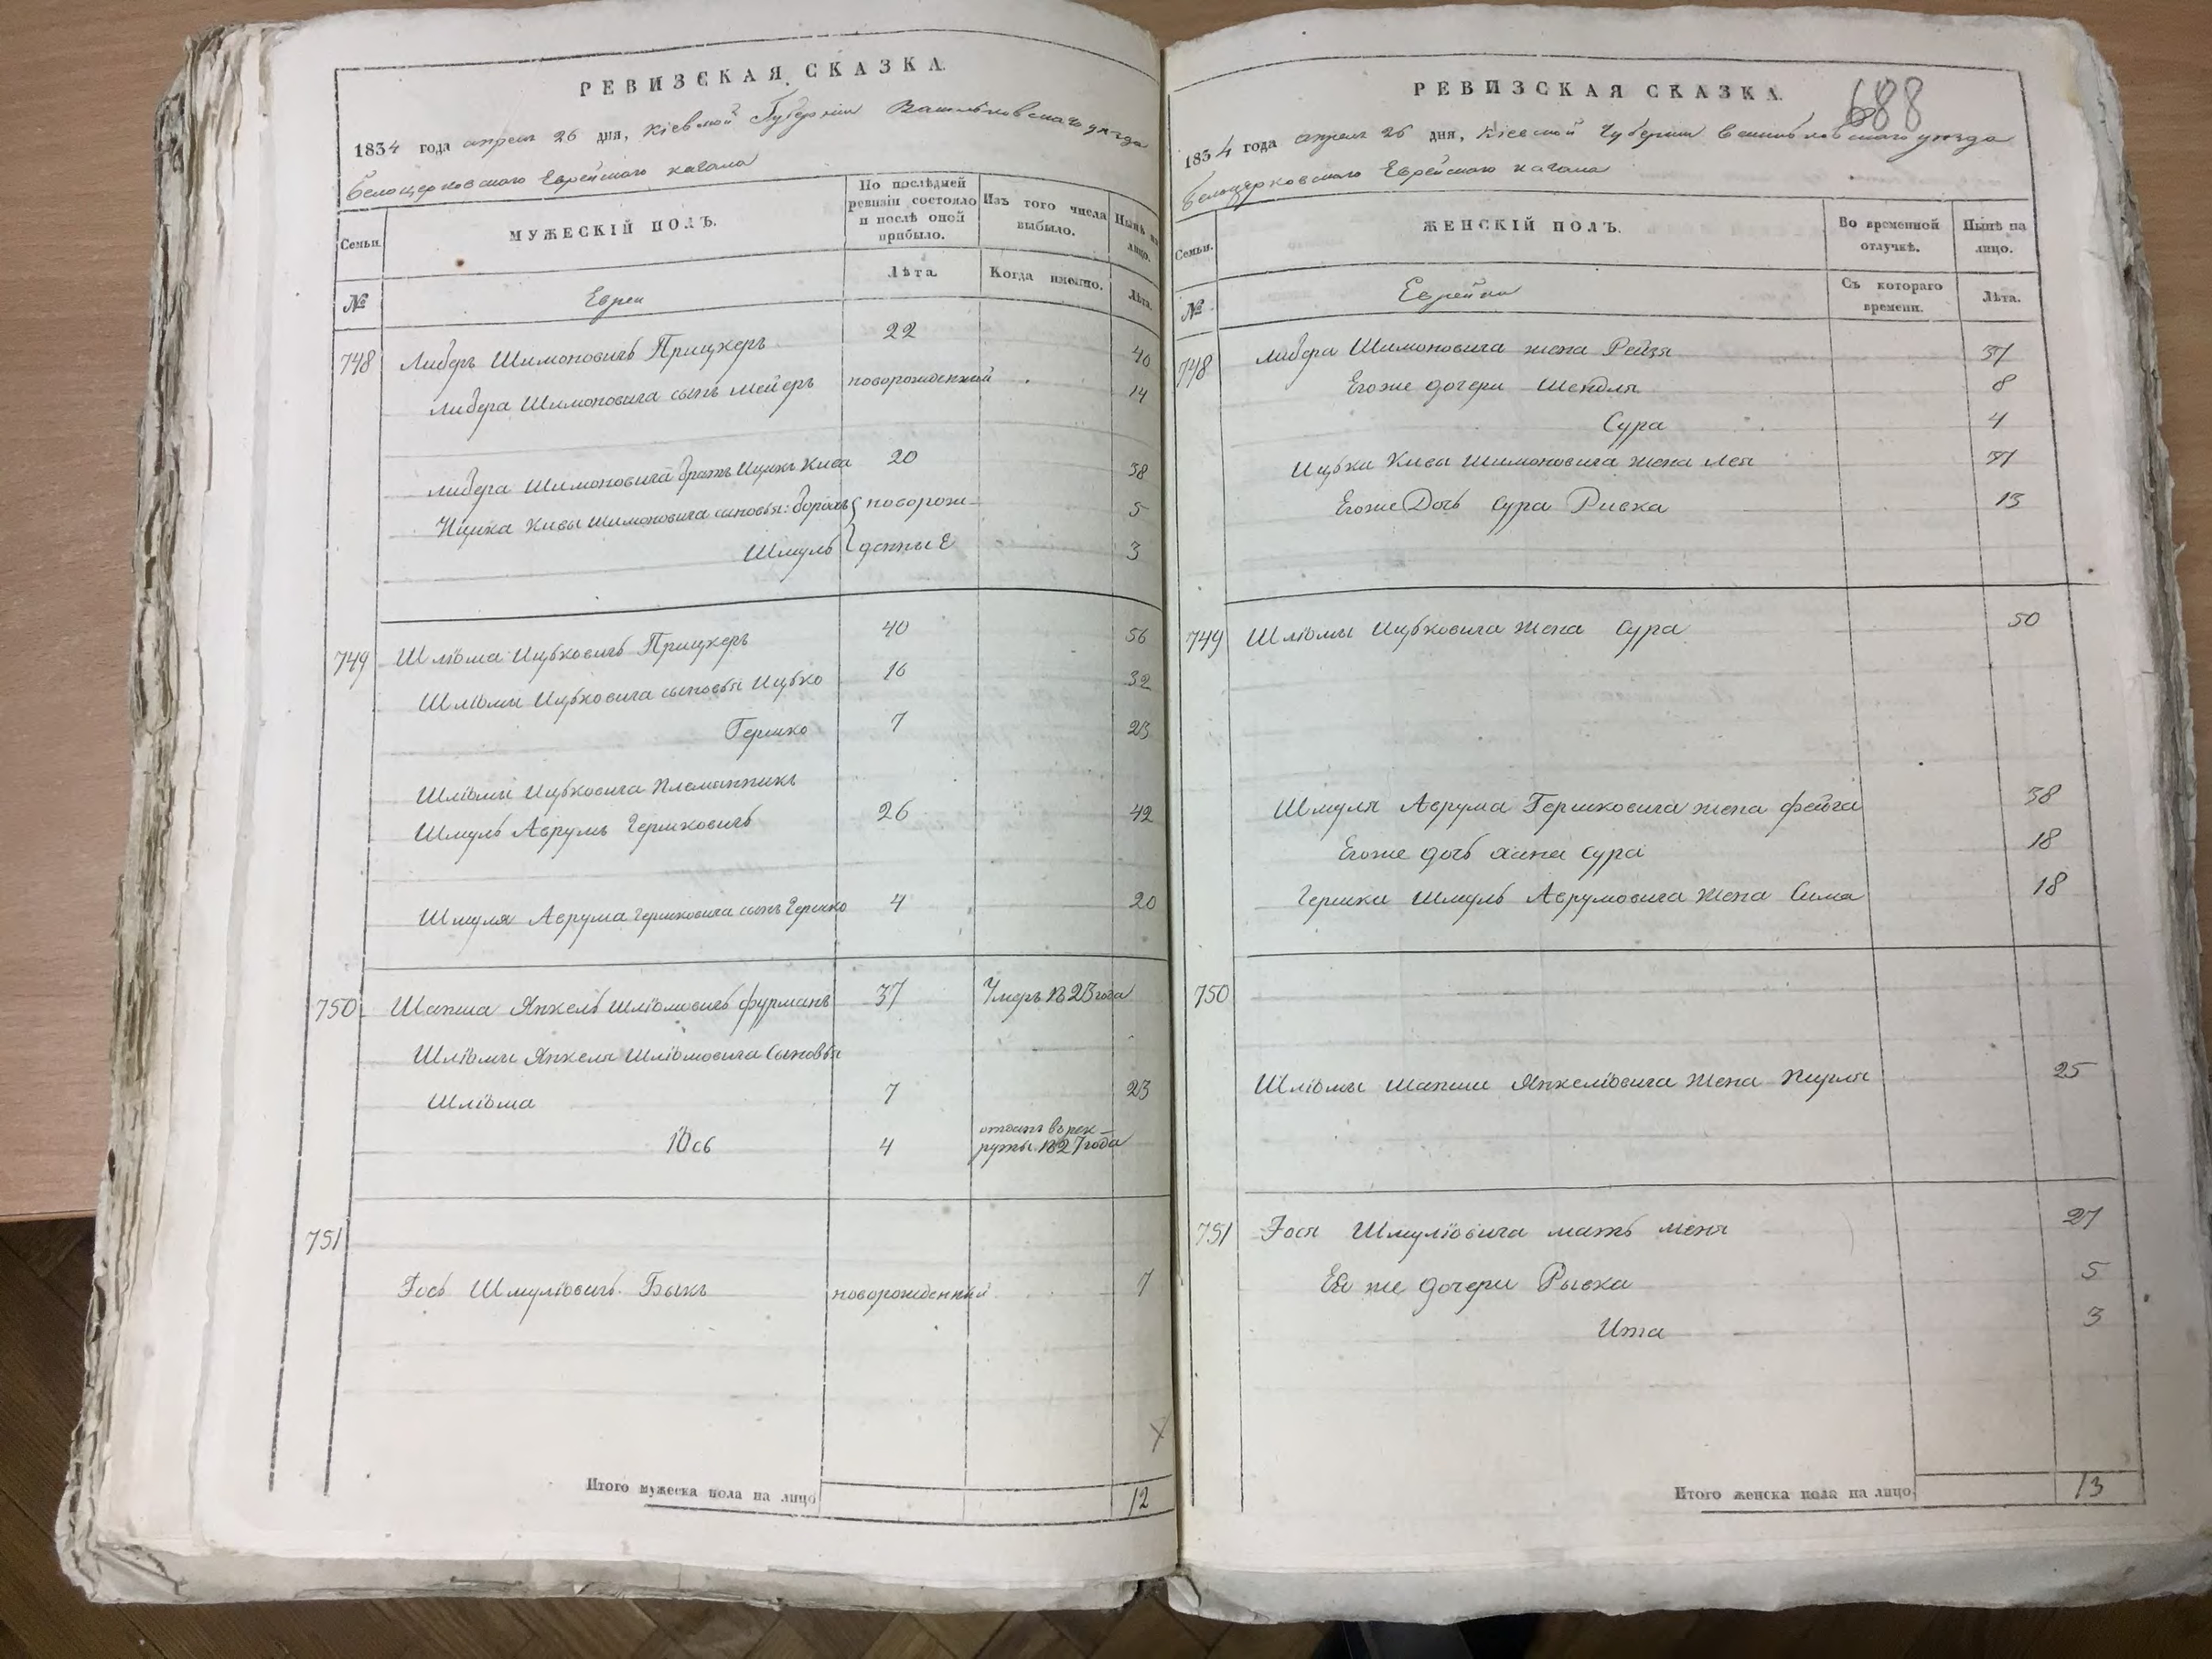 РЕВИЗСКАЯ СКАЗКА.
1834 года апреля 26 дня, Кіевской Губерніи Васильковскаго уѣзда
Белоцерковского Еврейского кагала
Семьи.
МУЖЕСКІЙ ПОЛЪ.
По послѣдней ревизіи состояло и послѣ оной прибыло.
Изъ того числа выбыло.
Нынѣ на лицо.
№
Евреи
Лѣта.
Когда именно.
Лѣта.
748 Либеръ Шимоновичъ Прицкеръ 22 40
Либера Шимоновича сынъ Мейеръ новорожденный 14
Либера Шимоновича братъ Ицикъ Кива 20 38
Ицика Кивы Шимоновича сыновья: Борохъ новорож- 5
Шмуль денные 3
749 Шліома Ицьковичъ Прицкеръ 40 56
Шліомы Ицьковича сыновья Ицько 16 32
Гершко 7 23
Шліомы Ицьковича племянникъ
Шмуль Аврумъ Гершковичъ 26 42
Шмуля Аврума Гершковича сынъ Гершко 4 20
750 Шапша Янкель Шліомовичъ фурманъ 37 Умеръ 1823 года
Шліомы Янкеля Шліомовича Сыновья
Шліома 7 23
Юсь 4 отданъ в рек-
руты 1827 года
751
Іось Шмуліовичъ Быкъ новорожденный 7
Итого мужеска пола на лицо 12
РЕВИЗСКАЯ СКАЗКА.
688
1834 года апреля 26 дня, Кіевской Губерніи Васильковскаго уѣзда
Белоцерковского Еврейского кагала
Семьи.
ЖЕНСКІЙ ПОЛЪ.
Во временной отлучкѣ.
Нынѣ на лицо.
№
Еврейки
Съ котораго времени.
Лѣта.
748 Либера Шимоновича жена Рейзя 37
Его же дочери Шендля 8
Сура 4
Ицька Кивы Шимоновича жена Лея 37
Его же Дочь Сура Ривка 13
749 Шліомы Ицьковича жена Сура 50
Шмуля Аврума Гершковича жена фейга 38
Его же дочь Хана Сура 18
Гершка Шмуль Аврумовича жена Сима 18
750
Шліомы Шапши Янкеліовича жена Перля 25
751 Іося Шмуліовича мать Меня 27
Ея же дочери Рывка 5
Ита 3
Итого женска пола на лицо. 13